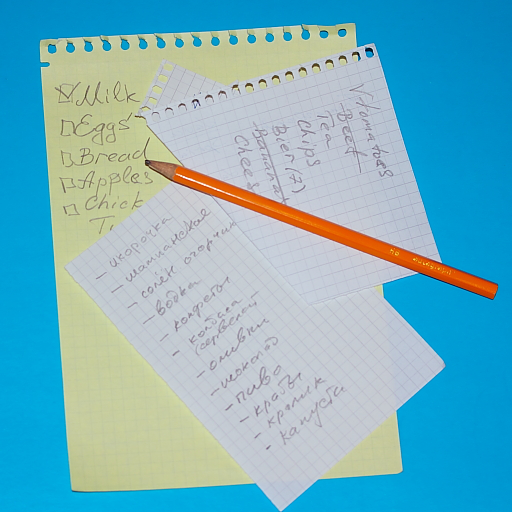 Milk
Eggs
Bread
Apples
Chick
T
V tomatoes
Beef
Tea
Chips
Bier (7)
Chees
- икорочка
- шампанское
- солён огурчик
- водка
- конфеты
- колбаса
(сервелат)
- оливки
- шоколад
- пиво
- крабы
- кролик
- капуста